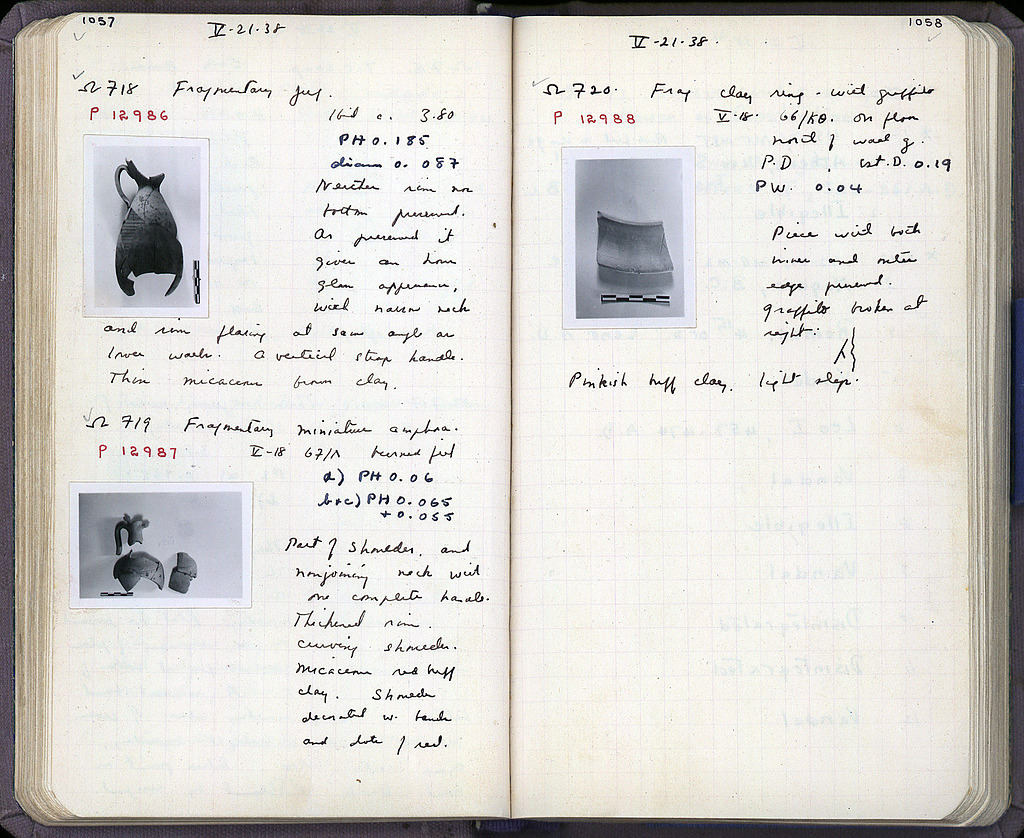 1057
V-21-38
Ω 718 Fragmentary jug.
P 12986
Ibid c. 3.80
PH 0.185
diam 0.087
Neither rim nor
bottom preserved.
As preserved it
gives an hour
glass appearance,
with narrow neck
and rim flaring at same angle as
lower walls. A vertical strap handle.
Thin micaceous brown clay.
Ω 719 Fragmentary miniature amphora.
P 12987
V-18 67/Λ burned fill
a) PH 0.06
b+c) PH 0.065
+ 0.055
Part of shoulder, and
nonjoining neck with
one complete handle.
Thickened rim.
curving shoulder.
Micaceous red buff
clay. Shoulder
decorated w. bands
and dots of red.
1058
V-21-38.
Ω 720. Frag clay ring - with graffito
P 12988
V-18. 66/ΚΘ. on floor
north of wall g.
P.D , est. D. 0.19
PW. 0.04
Piece with both
inner and outer
edge preserved.
graffito broken at
right:
Pinkish buff clay, light slip.